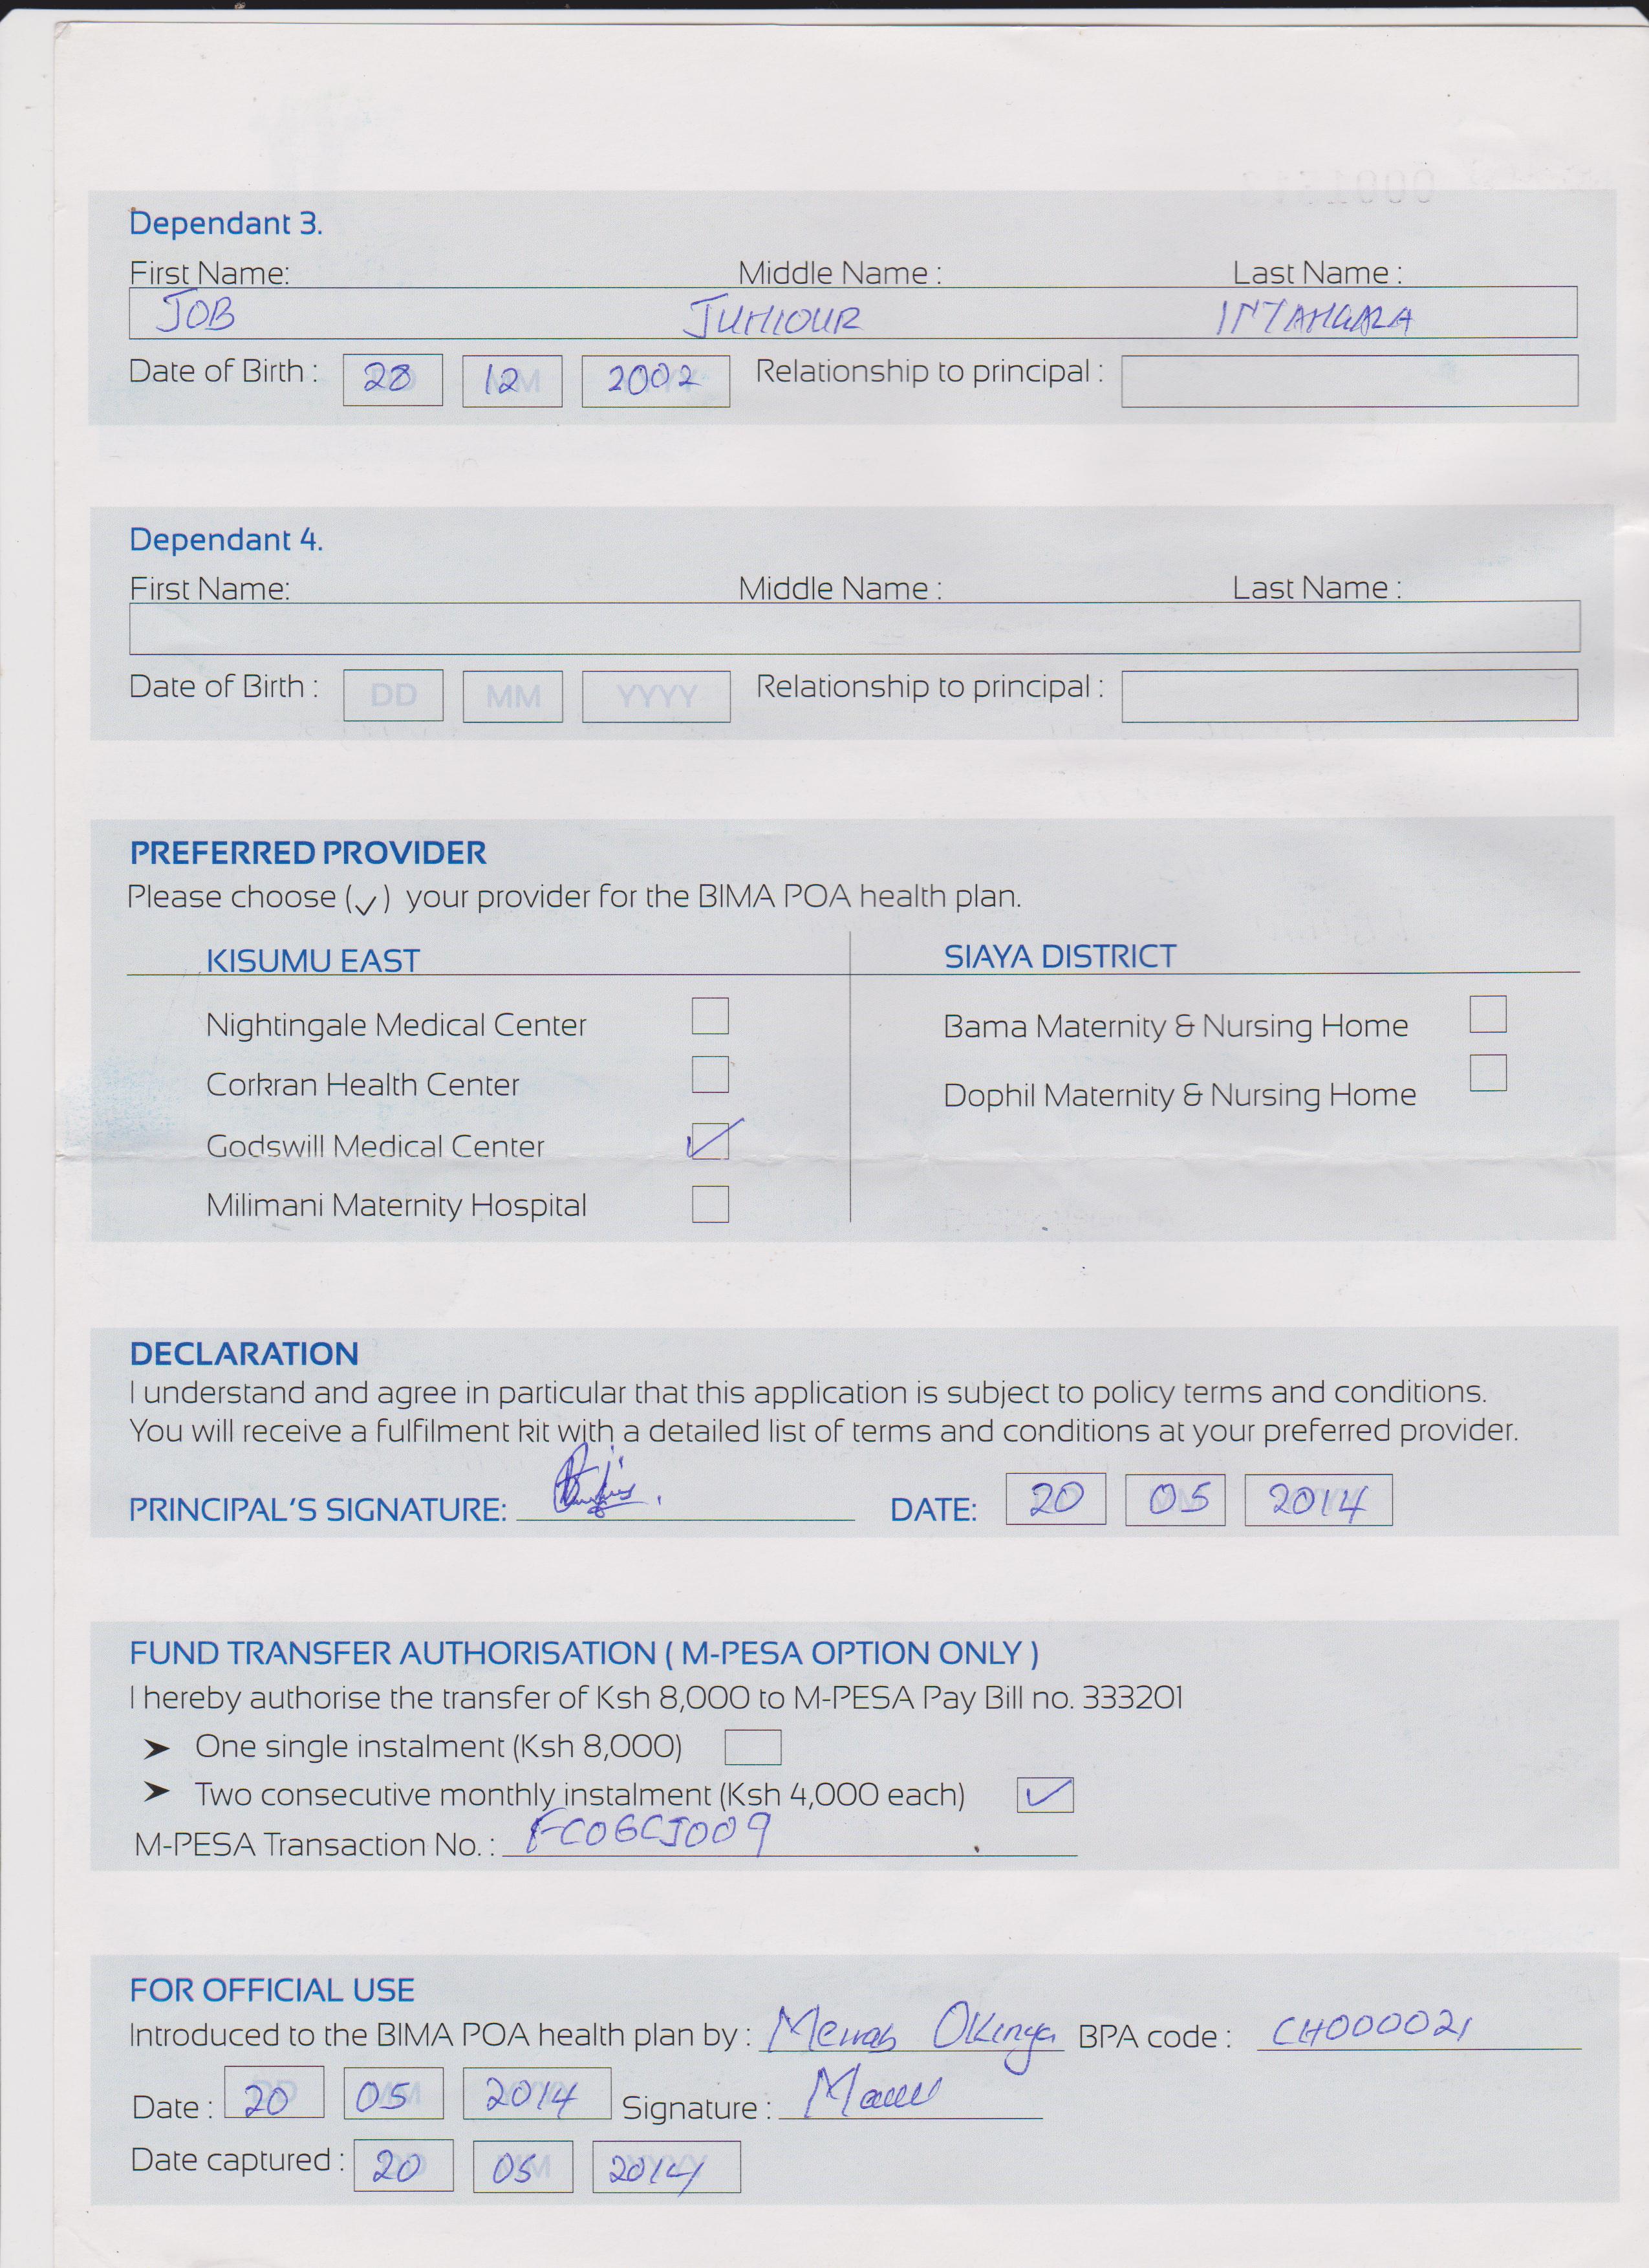 Dependant 3.
First Name: Middle Name : Last Name :
JOB JUNIOUR
Date of Birth : 28 12 2002 Relationship to principal :
Dependant 4.
First Name: Middle Name : Last Name :
Date of Birth : DD MM YYYY Relationship to principal :
PREFERRED PROVIDER
Please choose (✓) your provider for the BIMA POA health plan.
KISUMU EAST SIAYA DISTRICT
Nightingale Medical Center Bama Maternity & Nursing Home
Corkran Health Center Dophil Maternity & Nursing Home
Godswill Medical Center ✓
Milimani Maternity Hospital
DECLARATION
I understand and agree in particular that this application is subject to policy terms and conditions.
You will receive a fulfilment kit with a detailed list of terms and conditions at your preferred provider.
PRINCIPAL'S SIGNATURE: DATE: 20 05 2014
FUND TRANSFER AUTHORISATION ( M-PESA OPTION ONLY )
I hereby authorise the transfer of Ksh 8,000 to M-PESA Pay Bill no. 333201
➤ One single instalment (Ksh 8,000)
➤ Two consecutive monthly instalment (Ksh 4,000 each) ✓
M-PESA Transaction No. : FC06CJ009
FOR OFFICIAL USE
Introduced to the BIMA POA health plan by : Okinya BPA code : CH000021
Date : 20 05 2014 Signature :
Date captured : 20 05 2014